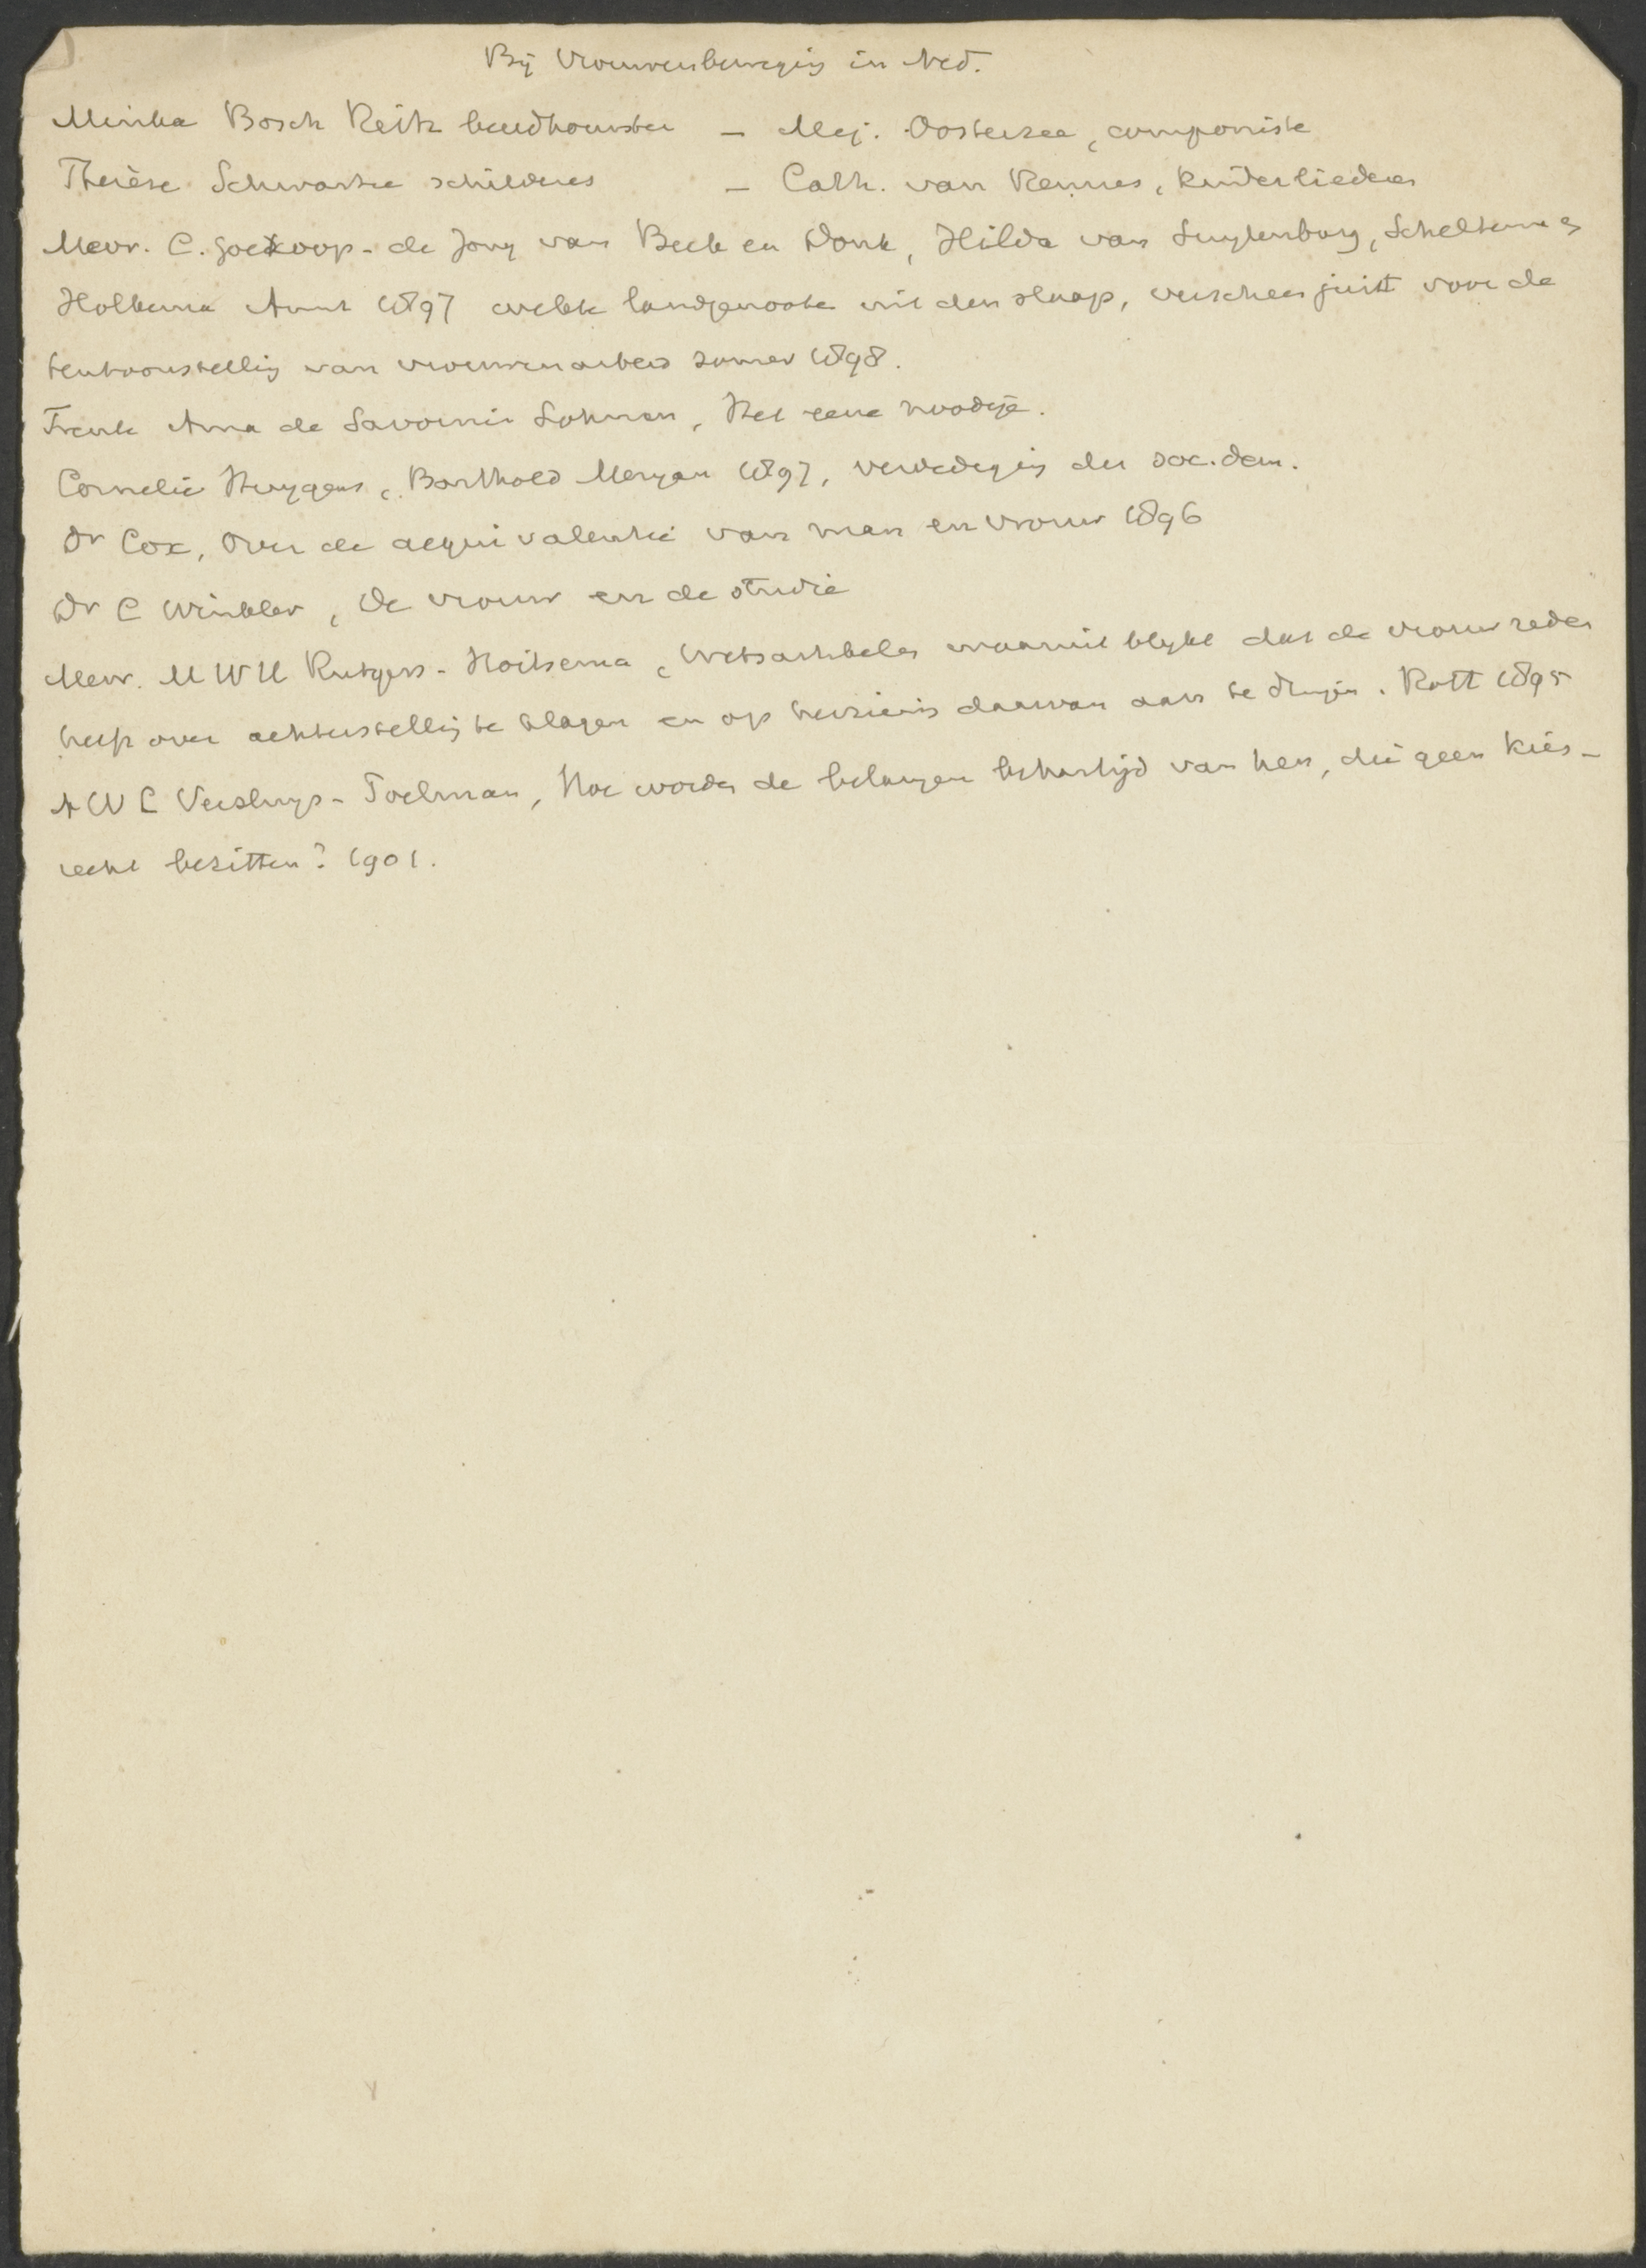 Bij Vrouwenbeweging in Ned.
Minka Bosch Reitz beeldhouwster – Mej. Oosterzee, componiste
Thérèse Schwartze schilderes – Cath. van Rennes, kinderliederen
Mevr. C. Goekoop - de Jong van Beek en Donk, Hilda van Suylenburg, Scheltema en
Holkema Amst 1897 wekte landgenoote uit den slaap, verscheen juist voor de
tentoonstelling van vrouwenarbeid zomer 1898.
Freule Anna de Savornin Lohman, Het eene noodige.
Cornelie Huygens, Barthold Meryan 1897, verdediging der soc. dem.
Dr Cox, Over de aequivalentie van man en vrouw 1896
Dr C Winkler, De vrouw en de studie
Mevr. M W H Rutgers - Hoitsema, Wetsartikelen waaruit blykt dat de vrouw reden
heeft over achterstelling te klagen en op herziening daarvan aan te dringen. Rott 1895
A W L Versluys - Poelman, Hoe worden de belangen behartigd van hen, die geen kies-
recht bezitten? 1901.